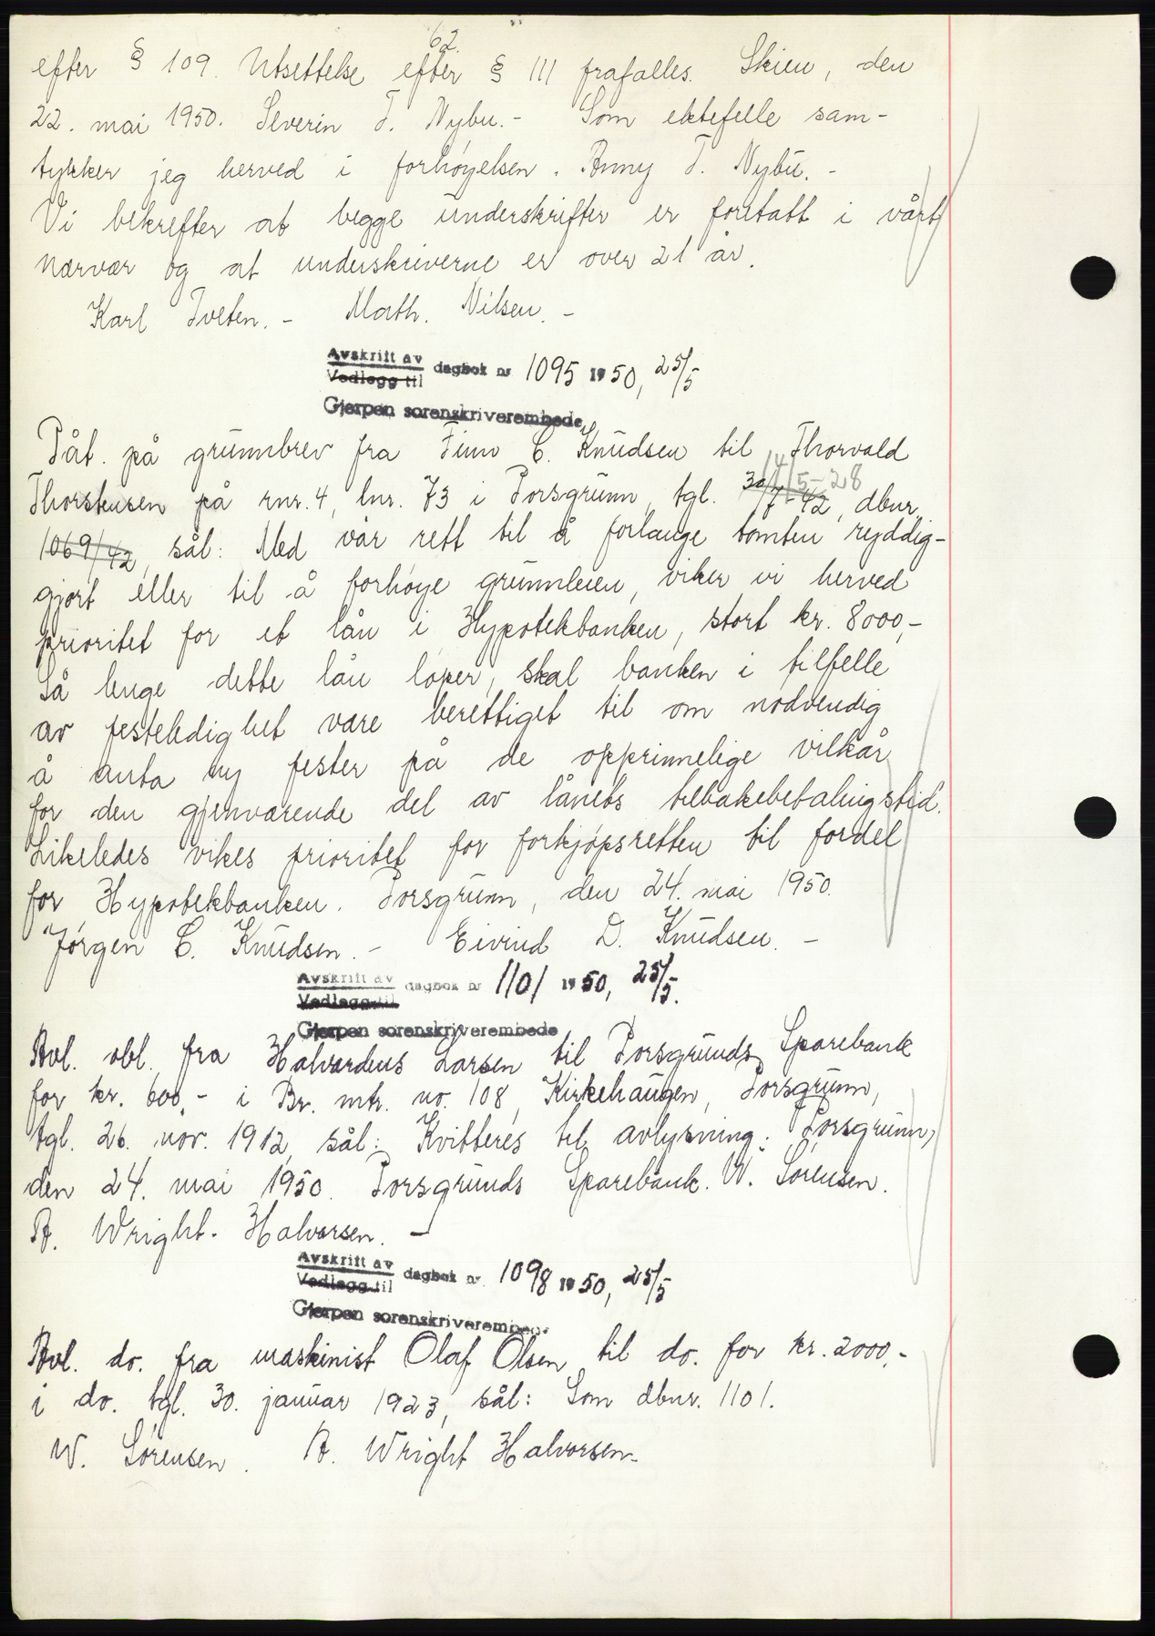 62.
efter § 109. Utsettelse efter § 111 frafalles. Skien, den
22. mai 1950. Severin T. Nybu. - Som ektefelle sam-
tykker jeg herved i forhøyelsen. Anny T. Nybu. -
Vi bekrefter at begge underskrifter er foretatt i vårt
nærvær og at underskriverne er over 21 år.
Karl Tveten. - Math. Nilsen. -
Avskrift av
Vedlegg til dagbok nr 1095 1950, 25/5
Gjerpen sorenskriverembede
Påt. på grunnbrev fra Finn C. Knudsen til Thorvald
Thorstensen på rnr. 4, lnr. 73 i Porsgrunn, tgl. 30/7-42 14/5-28, dbnr.
1069/42, sål: Med vår rett til å forlange tomten ryddig-
gjort eller til å forhøye grunnleien, viker vi herved
prioritet for et lån i Hypotekbanken, stort kr. 8000,-
Så lenge dette lån løper, skal banken i tilfelle
av festeledighet være berettiget til om nødvendig
å anta ny fester på de opprinnelige vilkår
for den gjenværende del av lånets tilbakebetalingstid.
Likeledes vikes prioritet for forkjøpsretten til fordel
for Hypotekbanken. Porsgrunn, den 24. mai 1950.
Jørgen C. Knudsen. - Eivind D. Knudsen. -
Avskrift av
Vedlegg til dagbok nr 1101 1950, 25/5.
Gjerpen sorenskriverembede
Avl. obl. fra Halvardus Larsen til Porsgrunds Sparebank
for kr. 600,- i Br. mtr. no. 108, Kirkehaugen, Porsgrunn,
tgl. 26. nov. 1912, sål: Kvitteres til avlysning. Porsgrunn,
den 24. mai 1950. Porsgrunds Sparebank. W. Sørensen.
A. Wright. Halvorsen. -
Avskrift av
Vedlegg til dagbok nr. 1098 1950, 25/5
Gjerpen sorenskriverembede
Avl. do. fra maskinist Olaf Olsen til do. for kr. 2000,-
i do. tgl. 30. januar 1923, sål: Som dbnr. 1101.
W. Sørensen. A. Wright Halvorsen-